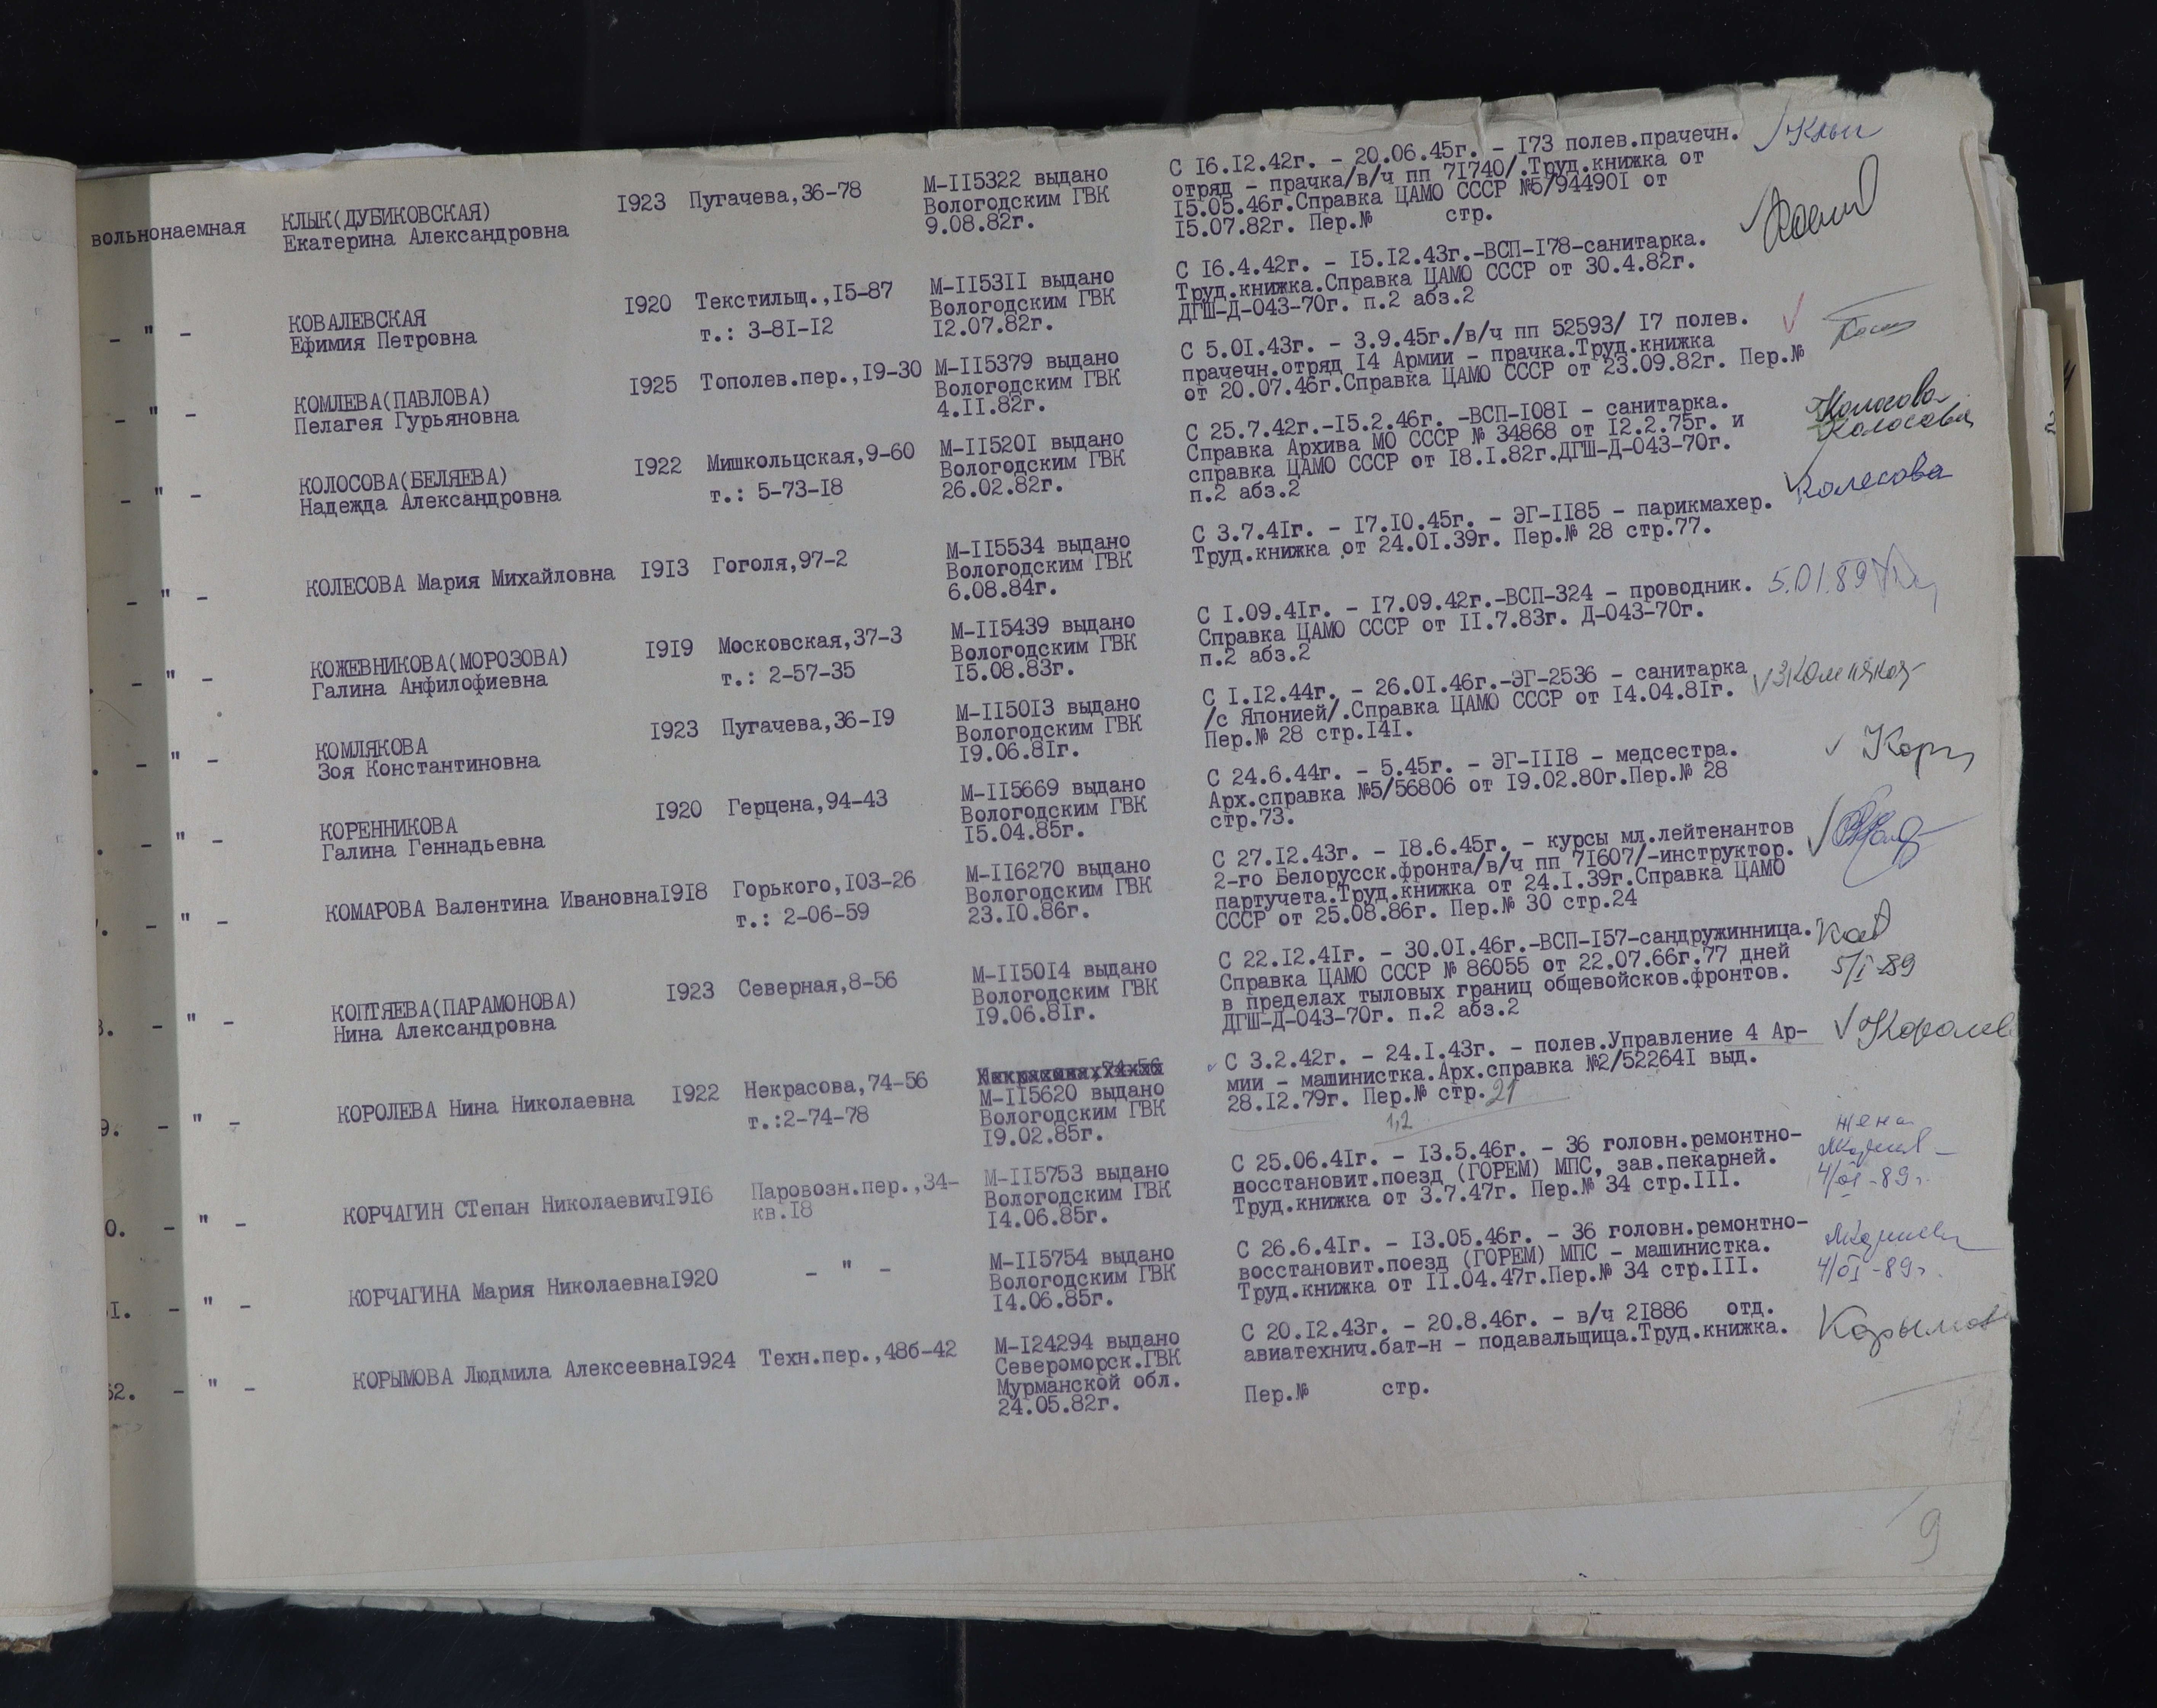 вольнонаемная КЛЫК(ДУБИКОВСКАЯ) I923 Пугачева,36-78 М-II5322 выдано С I6.I2.42г. - 20.06.45г. - I73 полев.прачечн.
Екатерина Александровна Вологодским ГВК отряд - прачка/в/ч пп 7I740/.Труд.книжка от
9.08.82г. I5.05.46г.Справка ЦАМО СССР №5/94490I от
I5.07.82г. Пер.№ стр.
- " - КОВАЛЕВСКАЯ I920 Текстильщ.,I5-87 М-II53II выдано С I6.4.42г. - I5.I2.43г.-ВСП-I78-санитарка.
Ефимия Петровна т.: 3-8I-I2 Вологодским ГВК Труд.книжка.Справка ЦАМО СССР от 30.4.82г.
I2.07.82г. ДГШ-Д-043-70г. п.2 абз.2
- " - КОМЛЕВА(ПАВЛОВА) I925 Тополев.пер.,I9-30 М-II5379 выдано С 5.0I.43г. - 3.9.45г./в/ч пп 52593/ I7 полев.
Пелагея Гурьяновна Вологодским ГВК прачечн.отряд I4 Армии - прачка.Труд.книжка
4.II.82г. от 20.07.46г.Справка ЦАМО СССР от 23.09.82г. Пер.№
- " - КОЛОСОВА(БЕЛЯЕВА) I922 Мишкольцская,9-60 М-II520I выдано С 25.7.42г.-I5.2.46г. -ВСП-I08I - санитарка. Колосова
Надежда Александровна т.: 5-73-I8 Вологодским ГВК Справка Архива МО СССР № 34868 от I2.2.75г. и Колосова
26.02.82г. справка ЦАМО СССР от I8.I.82г.ДГШ-Д-043-70г.
п.2 абз.2
- " - КОЛЕСОВА Мария Михайловна I9I3 Гоголя,97-2 М-II5534 выдано С 3.7.4Iг. - I7.I0.45г. - ЭГ-II85 - парикмахер. Колесова
Вологодским ГВК Труд.книжка от 24.0I.39г. Пер.№ 28 стр.77.
6.08.84г.
- " - КОЖЕВНИКОВА(МОРОЗОВА) I9I9 Московская,37-3 М-II5439 выдано С I.09.4Iг. - I7.09.42г.-ВСП-324 - проводник. 5.01.89
Галина Анфилофиевна т.: 2-57-35 Вологодским ГВК Справка ЦАМО СССР от II.7.83г. Д-043-70г.
I5.08.83г. п.2 абз.2
- " - КОМЛЯКОВА I923 Пугачева,36-I9 М-II50I3 выдано С I.I2.44г. - 26.0I.46г.-ЭГ-2536 - санитарка
Зоя Константиновна Вологодским ГВК /с Японией/.Справка ЦАМО СССР от I4.04.8Iг.
I9.06.8Iг. Пер.№ 28 стр.I4I.
- " - КОРЕННИКОВА I920 Герцена,94-43 М-II5669 выдано С 24.6.44г. - 5.45г. - ЭГ-III8 - медсестра.
Галина Геннадьевна Вологодским ГВК Арх.справка №5/56806 от I9.02.80г.Пер.№ 28
I5.04.85г. стр.73.
- " - КОМАРОВА Валентина ИвановнаI9I8 Горького,I03-26 М-II6270 выдано С 27.I2.43г. - I8.6.45г. - курсы мл.лейтенантов
т.: 2-06-59 Вологодским ГВК 2-го Белорусск.фронта/в/ч пп 7I607/-инструктор.
23.I0.86г. партучета.Труд.книжка от 24.I.39г.Справка ЦАМО
СССР от 25.08.86г. Пер.№ 30 стр.24
- " - КОПТЯЕВА(ПАРАМОНОВА) I923 Северная,8-56 М-II50I4 выдано С 22.I2.4Iг. - 30.0I.46г.-ВСП-I57-сандружинница.
Нина Александровна Вологодским ГВК Справка ЦАМО СССР № 86055 от 22.07.66г.77 дней 5/I-89
I9.06.8Iг. в пределах тыловых границ общевойсков.фронтов.
ДГШ-Д-043-70г. п.2 абз.2
9. - " - КОРОЛЕВА Нина Николаевна I922 Некрасова,74-56 М-II5620 выдано С 3.2.42г. - 24.I.43г. - полев.Управление 4 Ар-
т.:2-74-78 Вологодским ГВК мии - машинистка.Арх.справка №2/52264I выд.
I9.02.85г. 28.I2.79г. Пер.№ стр.21
1,2
0. - " - КОРЧАГИН СТепан НиколаевичI9I6 Паровозн.пер.,34- М-II5753 выдано С 25.06.4Iг. - I3.5.46г. - 36 головн.ремонтно- жена
кв.I8 Вологодским ГВК восстановит.поезд (ГОРЕМ) МПС, зав.пекарней.
I4.06.85г. Труд.книжка от 3.7.47г. Пер.№ 34 стр.III. 4/01-89г.
I. - " - КОРЧАГИНА Мария НиколаевнаI920 - " - М-II5754 выдано С 26.6.4Iг. - I3.05.46г. - 36 головн.ремонтно-
Вологодским ГВК восстановит.поезд (ГОРЕМ) МПС - машинистка.
I4.06.85г. Труд.книжка от II.04.47г.Пер.№ 34 стр.III. 4/01-89г.
62. - " - КОРЫМОВА Людмила АлексеевнаI924 Техн.пер.,48б-42 М-I24294 выдано С 20.I2.43г. - 20.8.46г. - в/ч 2I886 отд. Корымова
Североморск.ГВК авиатехнич.бат-н - подавальщица.Труд.книжка.
Мурманской обл.
24.05.82г. Пер.№ стр.
9